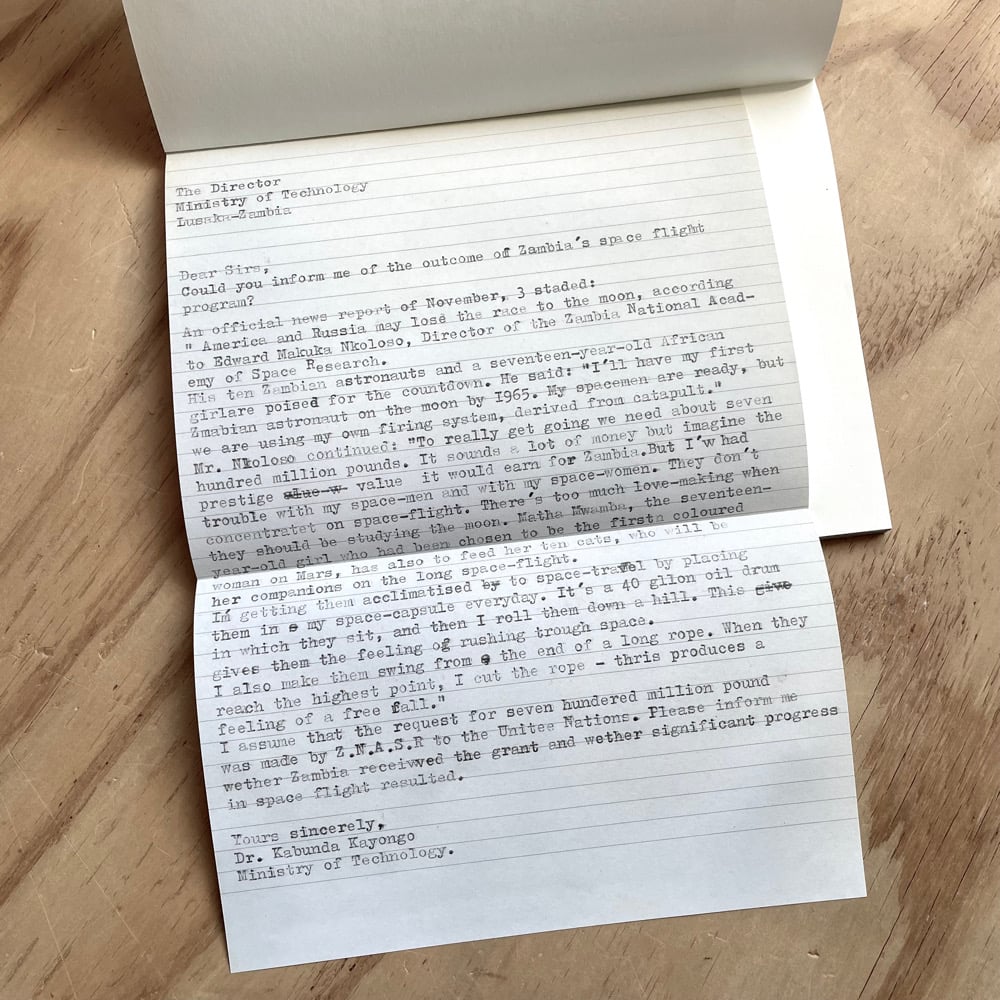 The Director
Ministry of Technology
Lusaka-Zambia
Dear Sirs,
Could you inform me of the outcome of Zambia's space flight
program?
An official news report of November, 3 staded:
" America and Russia may lose the race to the moon, according
to Edward Makuka Nkoloso, Director of the Zambia National Acad-
emy of Space Research.
His ten Zambian astronauts and a seventeen-year-old African
girlare poised for the countdown. He said: "I'll have my first
Zmabian astronaut on the moon by 1965. My spacemen are ready, but
we are using my own firing system, derived from catapult."
Mr. Nkoloso continued: "To really get going we need about seven
hundred million pounds. It sounds a lot of money but imagine the
prestige alue w value it would earn for Zambia.But I'w had
trouble with my space-men and with my space-women. They don't
concentratet on space-flight. There's too much love-making when
they should be studying the moon. Matha Mwamba, the seventeen-
year-old girl who had been chosen to be the firstn coloured
woman on Mars, has also to feed her ten cats, who will be
her companions on the long space-flight.
Im' getting them acclimatised by to space-travel by placing
them in my space-capsule everyday. It's a 40 glion oil drum
in which they sit, and then I roll them down a hill. This give
gives them the feeling of rushing trough space.
I also make them swing from the end of a long rope. When they
reach the highest point, I cut the rope - thris produces a
feeling of a free fall."
I assume that the request for seven hundered million pound
was made by Z.N.A.S.R to the Unites Nations. Please inform me
wether Zambia receivved the grant and wether significant progress
in space flight resulted.
Yours sincerely,
Dr. Kabunda Kayongo
Ministry of Technology.